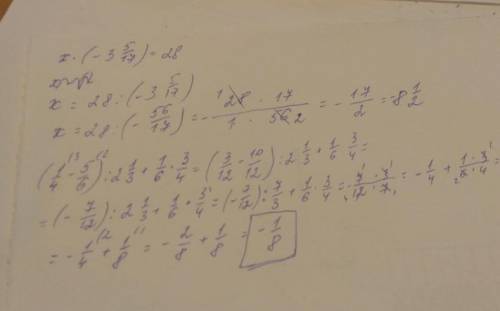 x · (-3 5/17) = 28
x = 28 : (-3 5/17)
x = 28 : (-56/17) = - 28 · 17 / 1 · 56 = - 17/2 = -8 1/2
(1/4 - 5/6) : 2 1/3 + 1/6 · 3/4 = (3/12 - 10/12) : 2 1/3 + 1/6 · 3/4 =
= (-7/12) : 2 1/3 + 1/6 · 3/4 = (-7/12) : 7/3 + 1/6 · 3/4 = - 7 · 3 / 12 · 7 = - 1/4 + 1 · 3 / 6 · 4 =
= - 1/4 + 1/8 = - 2/8 + 1/8 = - 1/8